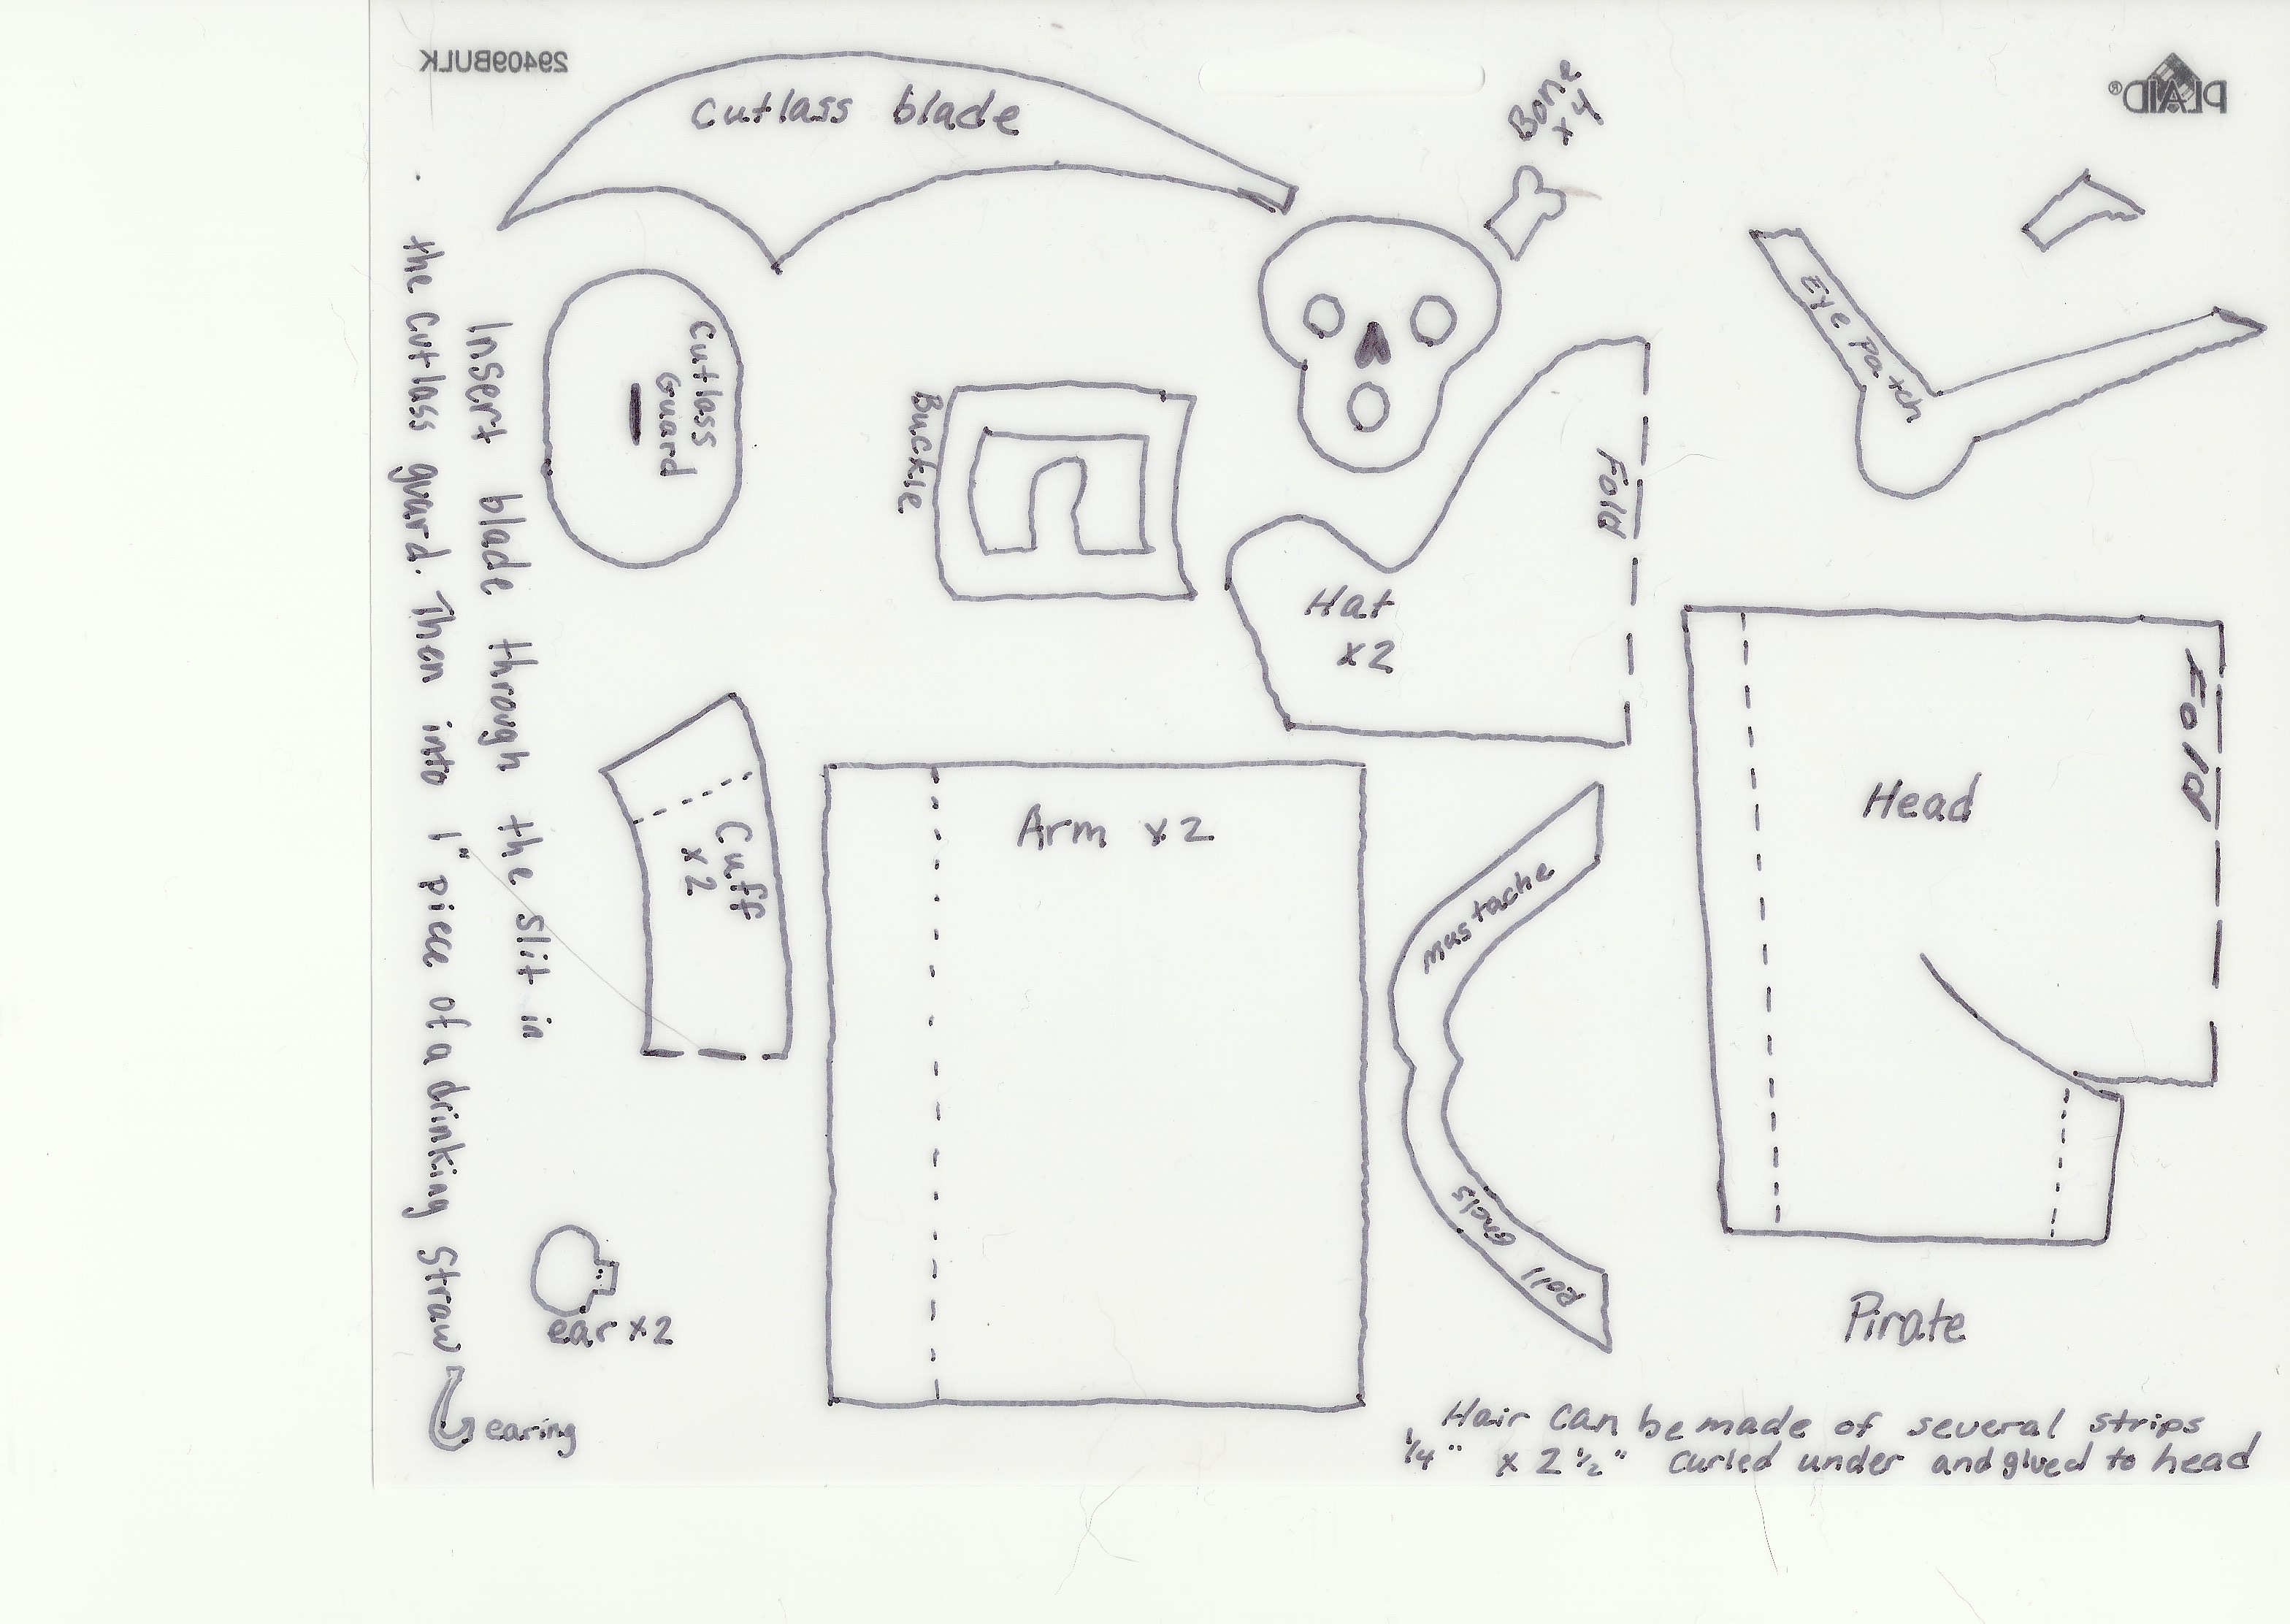 29409BULK
PLAID®
Cutlass blade
Bone
x 4
Eye Patch
Cutlass
Guard
Buckle
Fold
Hat
x2
Fold
Head
Insert blade through the slit in
the cutlass guard. Then into 1" piece of a drinking Straw
Cuff
x2
Arm x2
mustache
Roll ends
ear x2
earing
Pirate
Hair can be made of several strips
1/4" x 2 1/2" curled under and glued to head